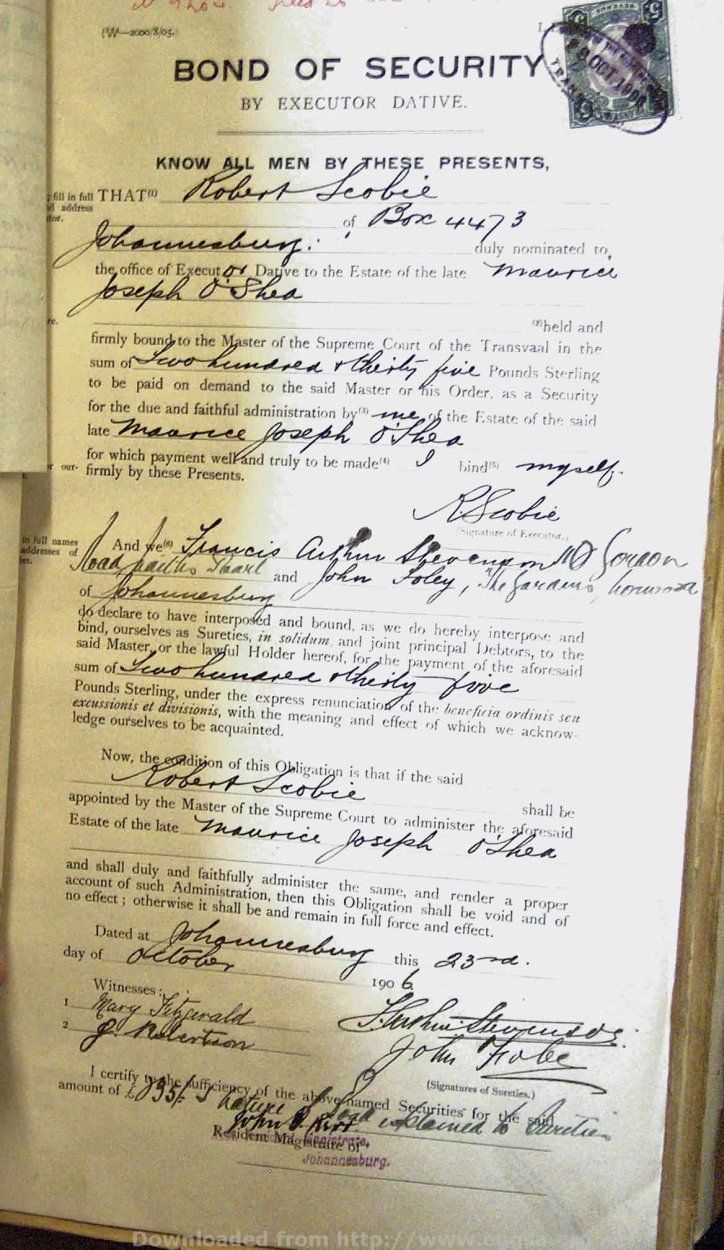 (W—2000/8/05.
BOND OF SECURITY
BY EXECUTOR DATIVE.
KNOW ALL MEN BY THESE PRESENTS,
fill in full THAT(1) Robert Scobie
address
of Box 4473
Johannesburg. duly nominated to
the office of Executor Dative to the Estate of the late Maurice
Joseph O'Shea
(2)held and
firmly bound to the Master of the Supreme Court of the Transvaal in the
sum of Two hundred & thirty five Pounds Sterling
to be paid on demand to the said Master or his Order, as a Security
for the due and faithful administration by(3) me of the Estate of the said
late Maurice Joseph O'Shea
for which payment well and truly to be made(4) I bind(5) myself.
our- firmly by these Presents.
RScobie
(Signature of Executor.)
in full names And we(6) Francis Arthur Stevenson 110 Gordon
addresses of Road and John Foley, The Gardens, Norwood
of Johannesburg
do declare to have interposed and bound, as we do hereby interpose and
bind, ourselves as Sureties, in solidum, and joint principal Debtors, to the
said Master, or the lawful Holder hereof, for the payment of the aforesaid
sum of Two hundred & thirty five
Pounds Sterling, under the express renunciation of the beneficia ordinis seu
excussionis et divisionis, with the meaning and effect of which we acknow-
ledge ourselves to be acquainted.
Now, the condition of this Obligation is that if the said
Robert Scobie shall be
appointed by the Master of the Supreme Court to administer the aforesaid
Estate of the late Maurice Joseph O'Shea
and shall duly and faithfully administer the same, and render a proper
account of such Administration, then this Obligation shall be void and of
no effect; otherwise it shall be and remain in full force and effect.
Dated at Johannesburg this 23rd.
day of October 1906
Witnesses:
1 Mary Fitzgerald F. Arthur Stevenson.
2 Robertson John
(Signatures of Sureties.)
I certify to the sufficiency of the above-named Securities for the said
amount of £235/- & nature of bond explained to Sureties
John
Resident Magistrate of
Magistrate,
Johannesburg.
OCT 1906
Downloaded from http://www.eggsa.org